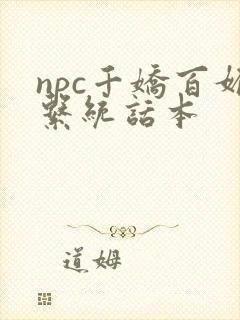 npc千嬌百媚
繫統話本
道姆